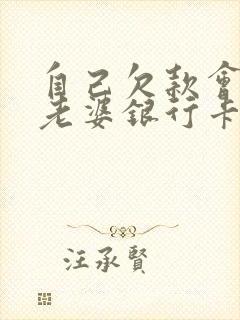 自己欠款會
老婆銀行卡
汪承賢